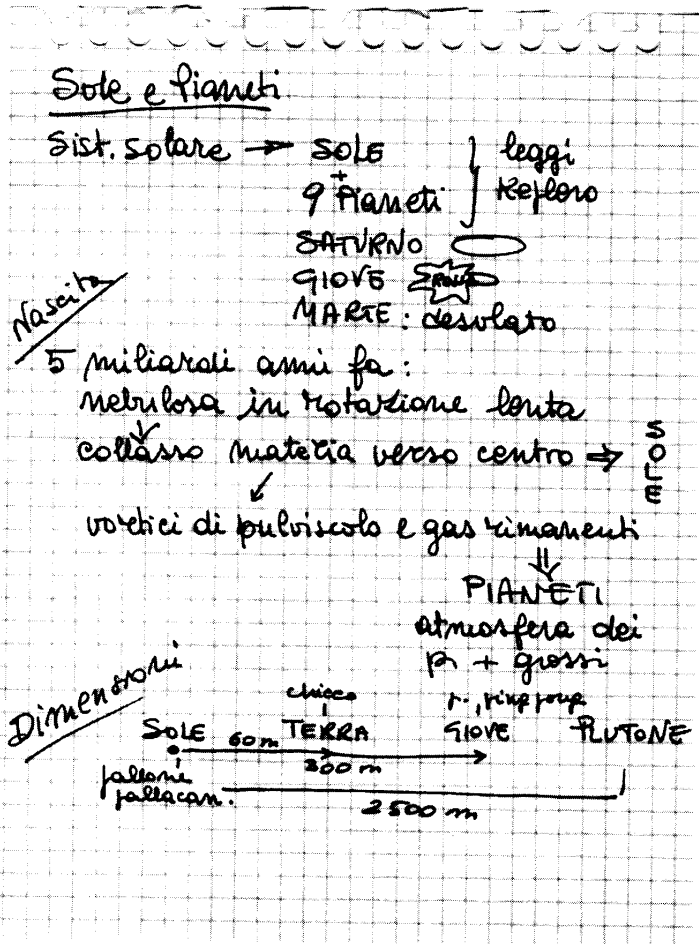 Sole e Pianeti
Sist. solare → SOLE
+
9 Pianeti
leggi
Keplero
SATURNO
GIOVE
MARTE : desolato
Nascita
5 miliardi anni fa :
nebulosa in rotazione lenta
collasso materia verso centro ⇒ SOLE
vortici di pulviscolo e gas rimanenti
PIANETI
atmosfera dei
p + grossi
Dimensioni
chicco
p. ping pong
SOLE 60 m TERRA GIOVE PLUTONE
300 m
pallone
pallacan.
2500 m